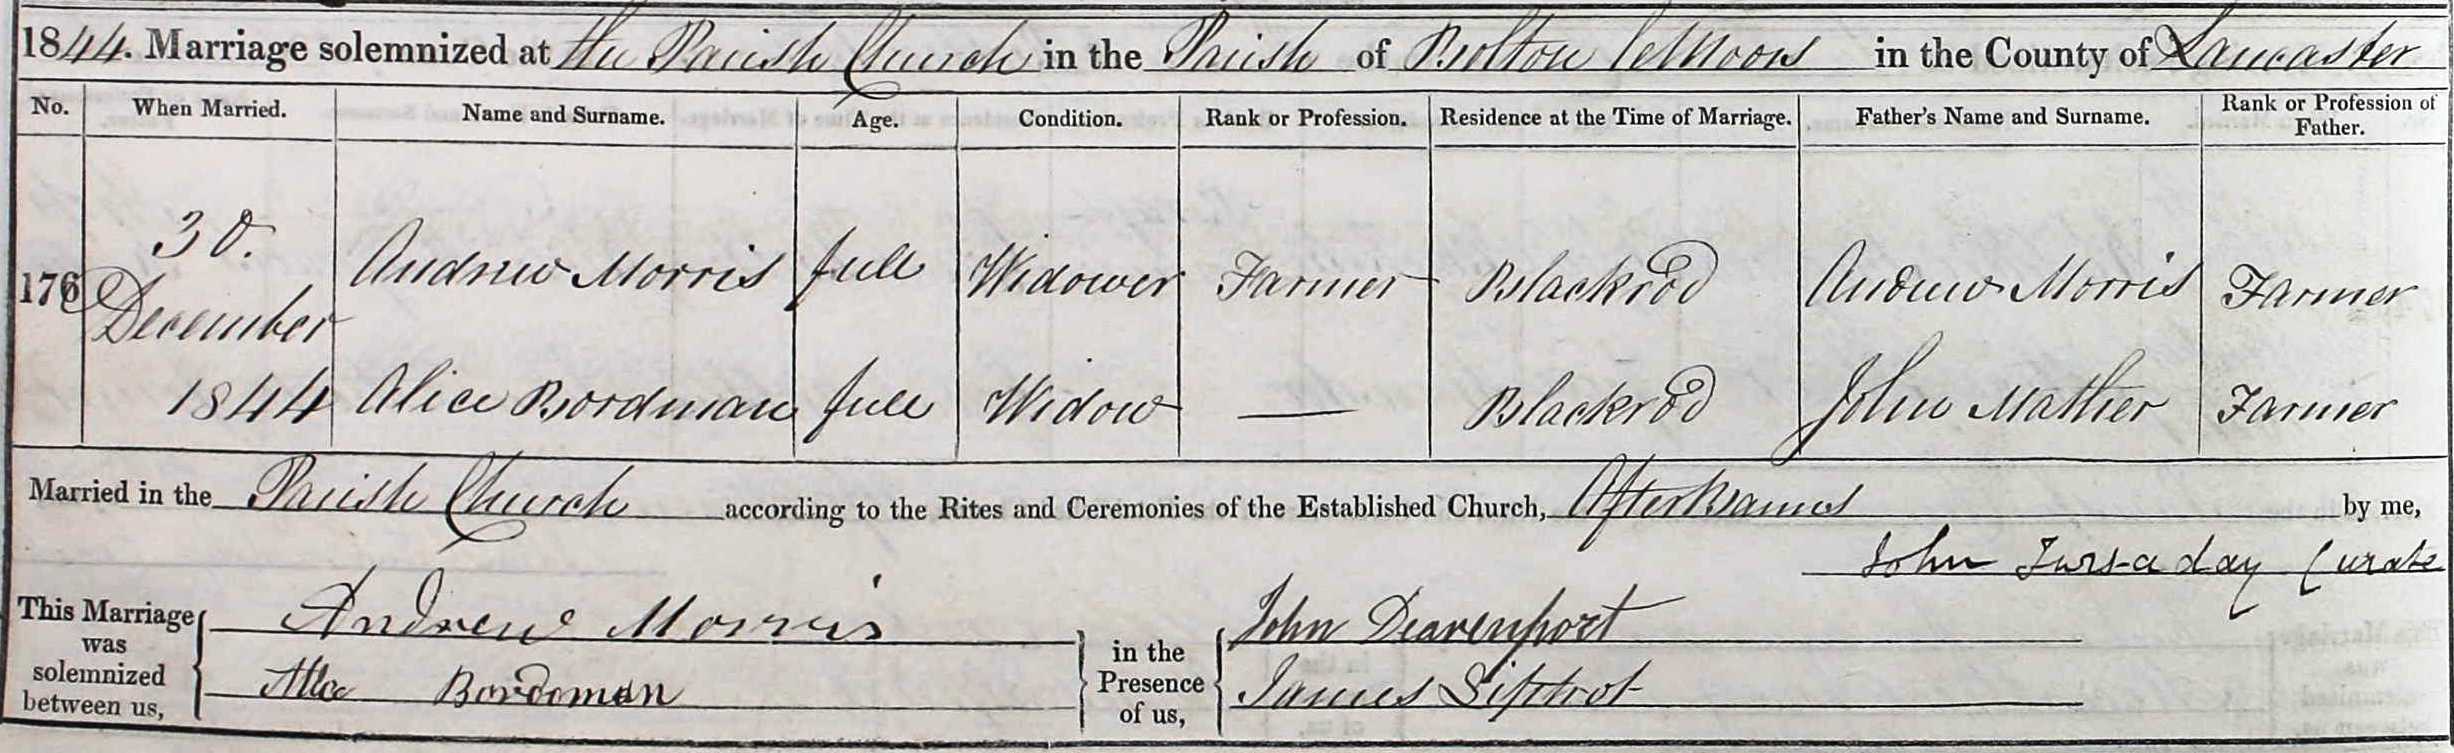 1844. Marriage solemnized at the Parish Church in the Parish of Bolton le Moors in the County of Lancaster
No. When Married. Name and Surname. Age. Condition. Rank or Profession. Residence at the Time of Marriage. Father's Name and Surname. Rank or Profession of Father.
176 30. December 1844 Andrew Morris full Widower Farmer Blackrod Andrew Morris Farmer
Alice Bordman full Widow — Blackrod John Mather Farmer
Married in the Parish Church according to the Rites and Ceremonies of the Established Church, After Banns by me,
John Curate
This Marriage was solemnized between us, Andrew Morris in the Presence of us, John Deavenport
Bordman James Siptrot